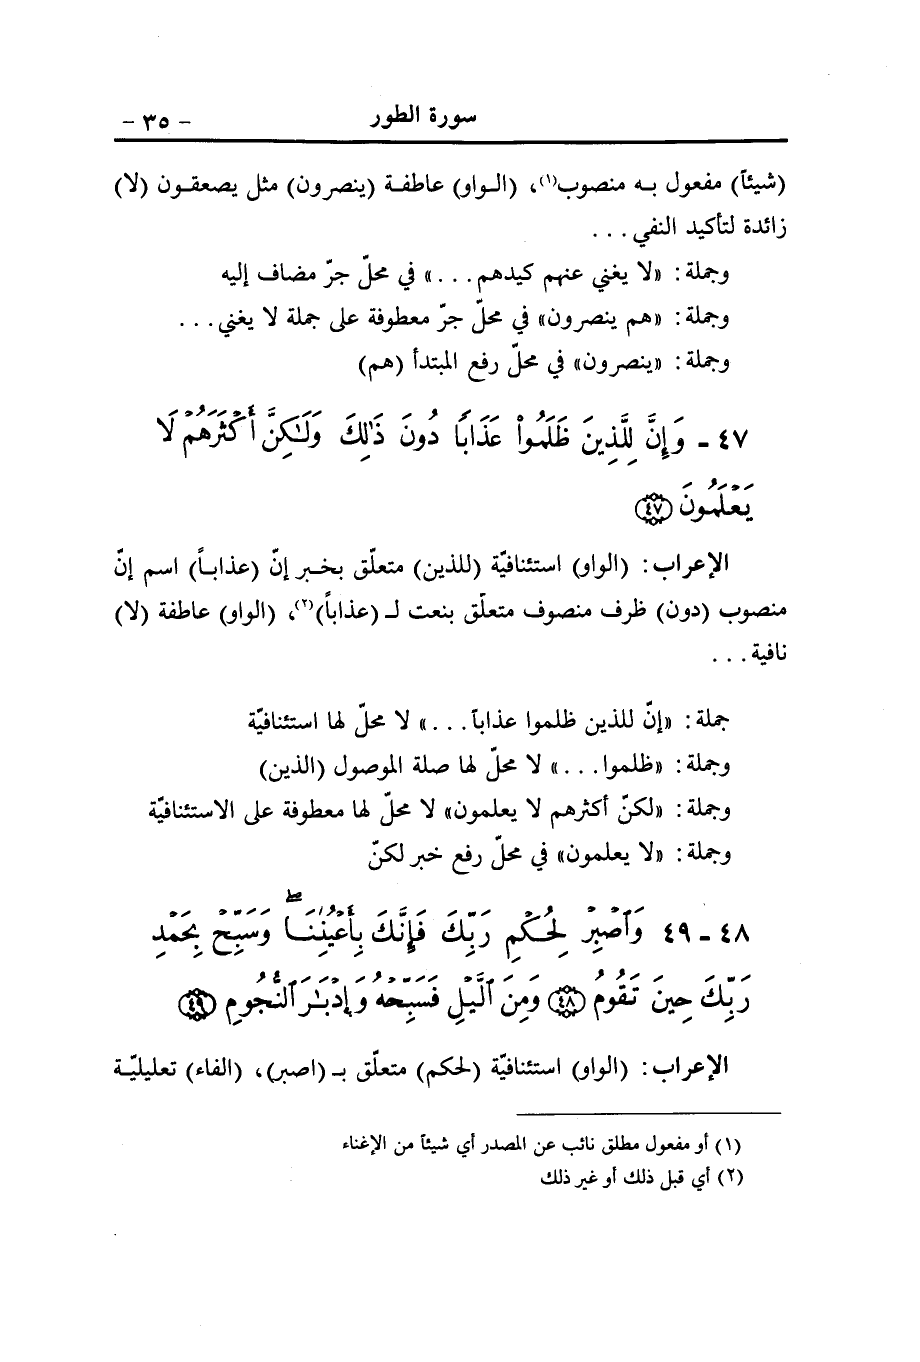 سورة الطور - ٣٥ -
(شيئاً) مفعول به منصوب(١)، (الواو) عاطفة (ينصرون) مثل يصعقون (لا)
زائدة لتأكيد النفي . . .
وجملة: «لا يغني عنهم كيدهم . . .» في محلّ جرّ مضاف إليه
وجملة: «هم ينصرون» في محلّ جرّ معطوفة على جملة لا يغني . . .
وجملة: «ينصرون» في محلّ رفع المبتدأ (هم)
٤٧ - وَإِنَّ لِلَّذِينَ ظَلَمُواْ عَذَابًا دُونَ ذَٰلِكَ وَلَٰكِنَّ أَكْثَرَهُمْ لَا
يَعْلَمُونَ ﴿٤٧﴾
الإعراب: (الواو) استئنافيّة (للذين) متعلّق بخبر إنّ (عذاباً) اسم إنّ
منصوب (دون) ظرف منصوف متعلّق بنعت لـ (عذاباً)(٢)، (الواو) عاطفة (لا)
نافية . . .
جملة: «إنّ للذين ظلموا عذاباً . . .» لا محلّ لها استئنافيّة
وجملة: «ظلموا . . .» لا محلّ لها صلة الموصول (الذين)
وجملة: «لكنّ أكثرهم لا يعلمون» لا محلّ لها معطوفة على الاستئنافيّة
وجملة: «لا يعلمون» في محلّ رفع خبر لكنّ
٤٨ - ٤٩ وَٱصْبِرْ لِحُكْمِ رَبِّكَ فَإِنَّكَ بِأَعْيُنِنَا ۖ وَسَبِّحْ بِحَمْدِ
رَبِّكَ حِينَ تَقُومُ ﴿٤٨﴾ وَمِنَ ٱلَّيْلِ فَسَبِّحْهُ وَإِدْبَٰرَ ٱلنُّجُومِ ﴿٤٩﴾
الإعراب: (الواو) استئنافيّة (لحكم) متعلّق بـ (اصبر)، (الفاء) تعليليّة
(١) أو مفعول مطلق نائب عن المصدر أي شيئاً من الإغناء
(٢) أي قبل ذلك أو غير ذلك